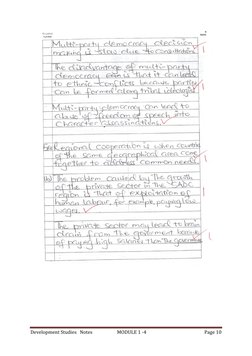 Multi-party democracy decision
making is slow due to consultations
The disadvantage of multi-party
democracy is that it can lead
to ethnic conflicts because parties
can be formed along tribal ideologies
Multi-party democracy can lead to
abuse of freedom of speech into
character assassinations.
Regional cooperation is when countries
of the same geographical area come
together to address common needs
The problem caused by the growth
of the private sector in the SADC
region is that of exploitation of
human labour, for example paying low
wages.
The private sector may lead to brain
drain from the government because
of paying high salaries than the government
Development Studies Notes MODULE 1 -4 Page 10